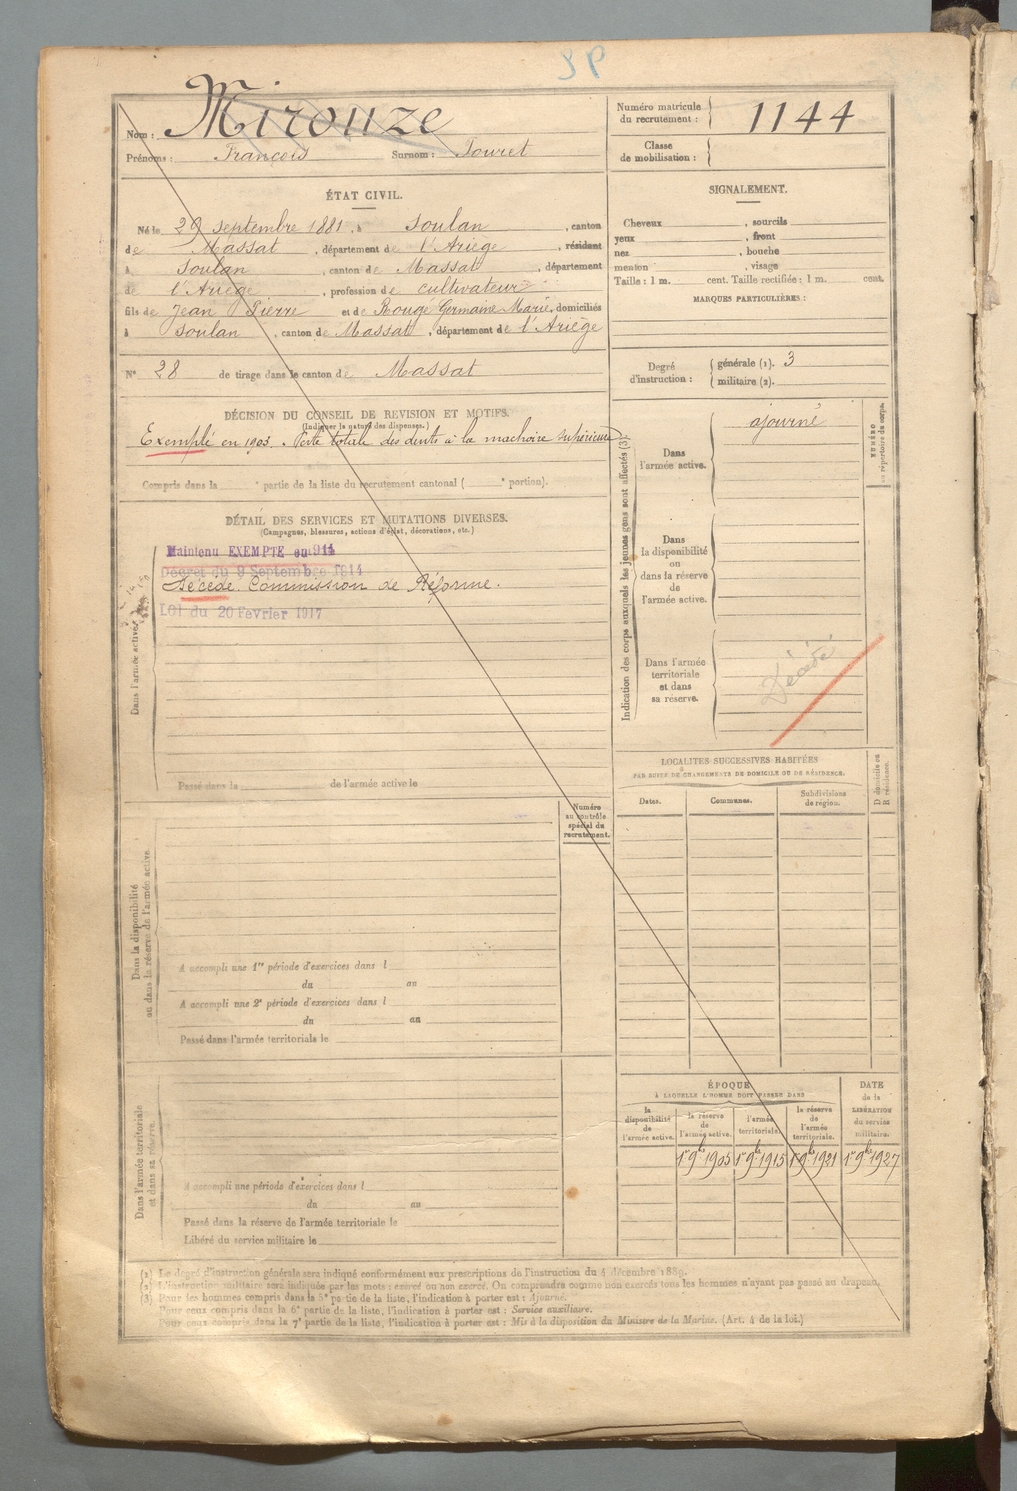 SP
Nom : Mirouze
Prénoms : François Surnom : Pouret
Numéro matricule du recrutement : 1144
Classe de mobilisation :
ÉTAT CIVIL.
Né le 29 septembre 1881, à Soulan, canton
de Massat, département de l'Ariège, résidant
à Soulan, canton de Massat, département
de l'Ariège, profession de cultivateur
fils de Jean Pierre et de Rougé Germaine Marie, domiciliés
à Soulan, canton de Massat, département de l'Ariège
N° 28 de tirage dans le canton de Massat
SIGNALEMENT.
Cheveux , sourcils
yeux , front
nez , bouche
menton , visage
Taille : 1 m. cent. Taille rectifiée : 1 m. cent.
MARQUES PARTICULIÈRES :
Degré d'instruction : générale (1). 3
militaire (2).
DÉCISION DU CONSEIL DE REVISION ET MOTIFS.
(Indiquer la nature des dispenses.)
Exempté en 1903. Perte totale des dents à la machoire supérieure
Compris dans la e partie de la liste du recrutement cantonal ( e portion).
DÉTAIL DES SERVICES ET MUTATIONS DIVERSES.
(Campagnes, blessures, actions d'éclat, décorations, etc.)
Maintenu EXEMPTE en 1914
Décret du 9 Septembre 1914
Décédé Commission de Réforme.
Loi du 20 Février 1917
Dans l'armée active.
Passé dans la de l'armée active le
Indication des corps auxquels les jeunes gens sont affectés (3).
Dans l'armée active.
ajourné
NUMÉRO au répertoire du corps.
Dans la disponibilité ou dans la réserve de l'armée active.
Dans l'armée territoriale et dans sa réserve.
Décédé
LOCALITÉS SUCCESSIVES HABITÉES
PAR SUITE DE CHANGEMENTS DE DOMICILE OU DE RÉSIDENCE.
Dates. Communes. Subdivisions de région.
D domicile ou R résidence.
Numéro au contrôle spécial du recrutement.
Dans la disponibilité ou dans la réserve de l'armée active.
A accompli une 1re période d'exercices dans l
du au
A accompli une 2e période d'exercices dans l
du au
Passé dans l'armée territoriale le
Dans l'armée territoriale et dans sa réserve.
A accompli une période d'exercices dans l
du au
Passé dans la réserve de l'armée territoriale le
Libéré du service militaire le
ÉPOQUE
À LAQUELLE L'HOMME DOIT PASSER DANS
la disponibilité de l'armée active.
la réserve de l'armée active.
l'armée territoriale.
la réserve de l'armée territoriale.
DATE de la LIBÉRATION du service militaire.
1er 9bre 1905 1er 9bre 1915 1er 9bre 1921 1er 9bre 1927
(1) Le degré d'instruction générale sera indiqué conformément aux prescriptions de l'instruction du 4 décembre 1889.
(2) L'instruction militaire sera indiquée par les mots : exercé ou non exercé. On comprendra comme non exercés tous les hommes n'ayant pas passé au drapeau.
(3) Pour les hommes compris dans la 5e partie de la liste, l'indication à porter est : Ajourné.
Pour ceux compris dans la 6e partie de la liste, l'indication à porter est : Service auxiliaire.
Pour ceux compris dans la 7e partie de la liste, l'indication à porter est : Mis à la disposition du Ministre de la Marine. (Art. 4 de la loi.)